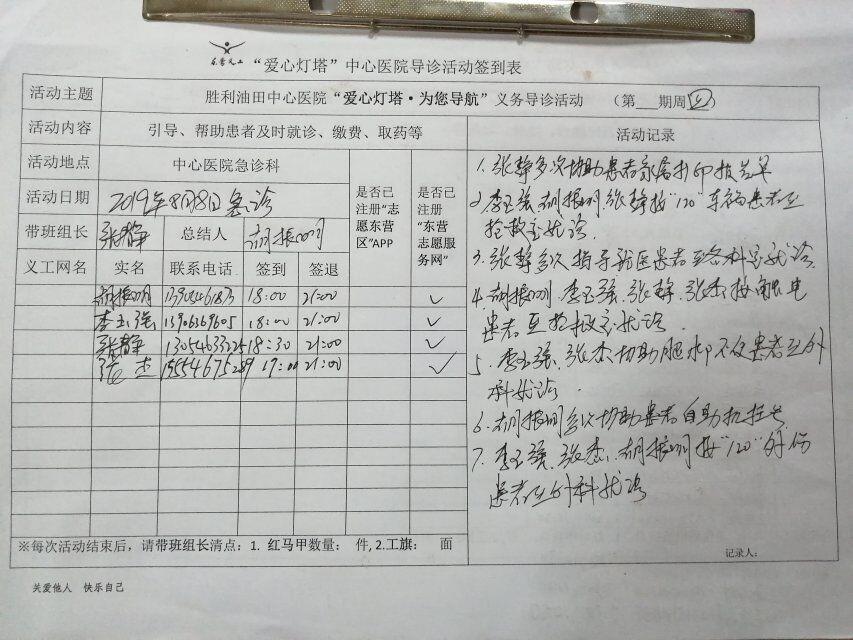 东营义工
“爱心灯塔”中心医院导诊活动签到表
活动主题 胜利油田中心医院“爱心灯塔·为您导航”义务导诊活动 （第 期周④）
活动内容 引导、帮助患者及时就诊、缴费、取药等
活动地点 中心医院急诊科
活动日期 2019年8月8日急诊
带班组长 张静 总结人 胡振明
是否已注册“志愿东营区”APP
是否已注册“东营志愿服务网”
义工网名 实名 联系电话 签到 签退
胡振明 18:00 21:00 ✓
李玉强 13906369605 18:00 21:00 ✓
张静 13054633225 18:30 21:00 ✓
张杰 15554675289 17:00 21:00 ✓
※每次活动结束后，请带班组长清点：1. 红马甲数量： 件, 2.工旗： 面
活动记录
1、张静多次协助患者家属打印报告单
2、李玉强、胡振明、张静接“120”车祸患者至
抢救室就诊。
3、张静多次指导就医患者至各科室就诊。
4、胡振明、李玉强、张静、张杰接触电
患者至抢救室就诊。
5、李玉强、张杰协助腿患者至外
科就诊。
6、胡振明多次协助患者自助机挂号
7、李玉强、张杰、胡振明接“120”外伤
患者至外科就诊
记录人：
关爱他人 快乐自己